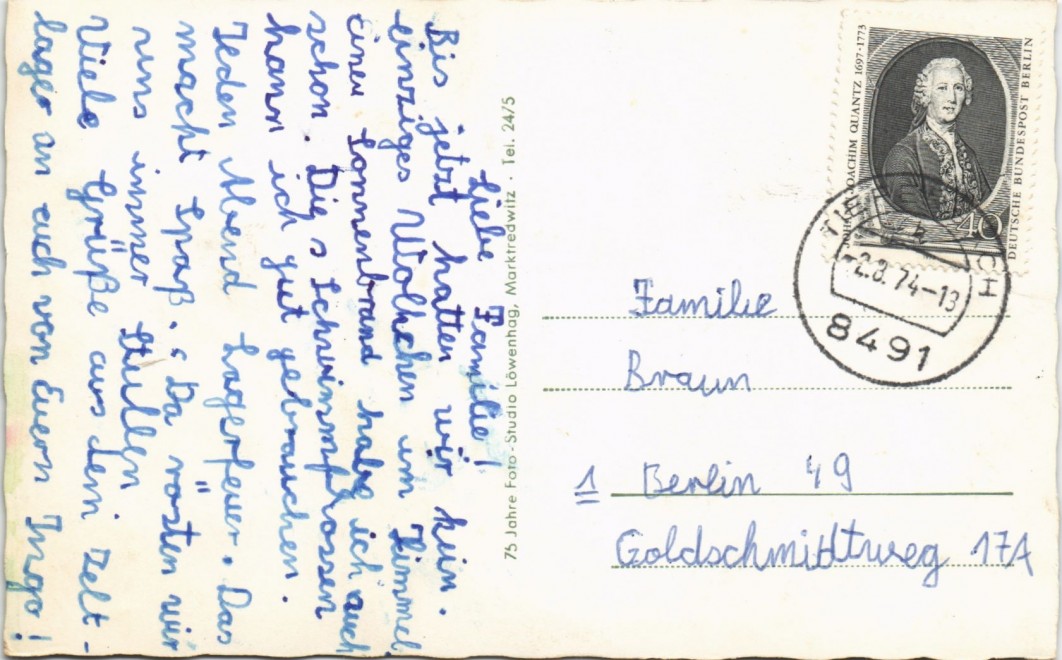 Liebe Familie!
Bis jetzt hatten wir kein.
einziges Wölkchen im Himmel
Einen Sonnenbrand habe ich auch
schon. Die s Schwimmflossen
kann ich gut gebrauchen.
Jeden Abend Lagerfeuer. Das
macht Spaß. Da rösten wir
uns immer Stullen
Viele Grüße aus dem Zelt-
lager an euch von Euern Ingo!
75 Jahre Foto - Studio Löwenhag, Marktredwitz · Tel. 24/5
JOHANN JOACHIM QUANTZ 1697-1773
DEUTSCHE BUNDESPOST BERLIN
40
-2.8.74-13
8491
Familie
Braun
1 Berlin 49
Goldschmidtweg 17A